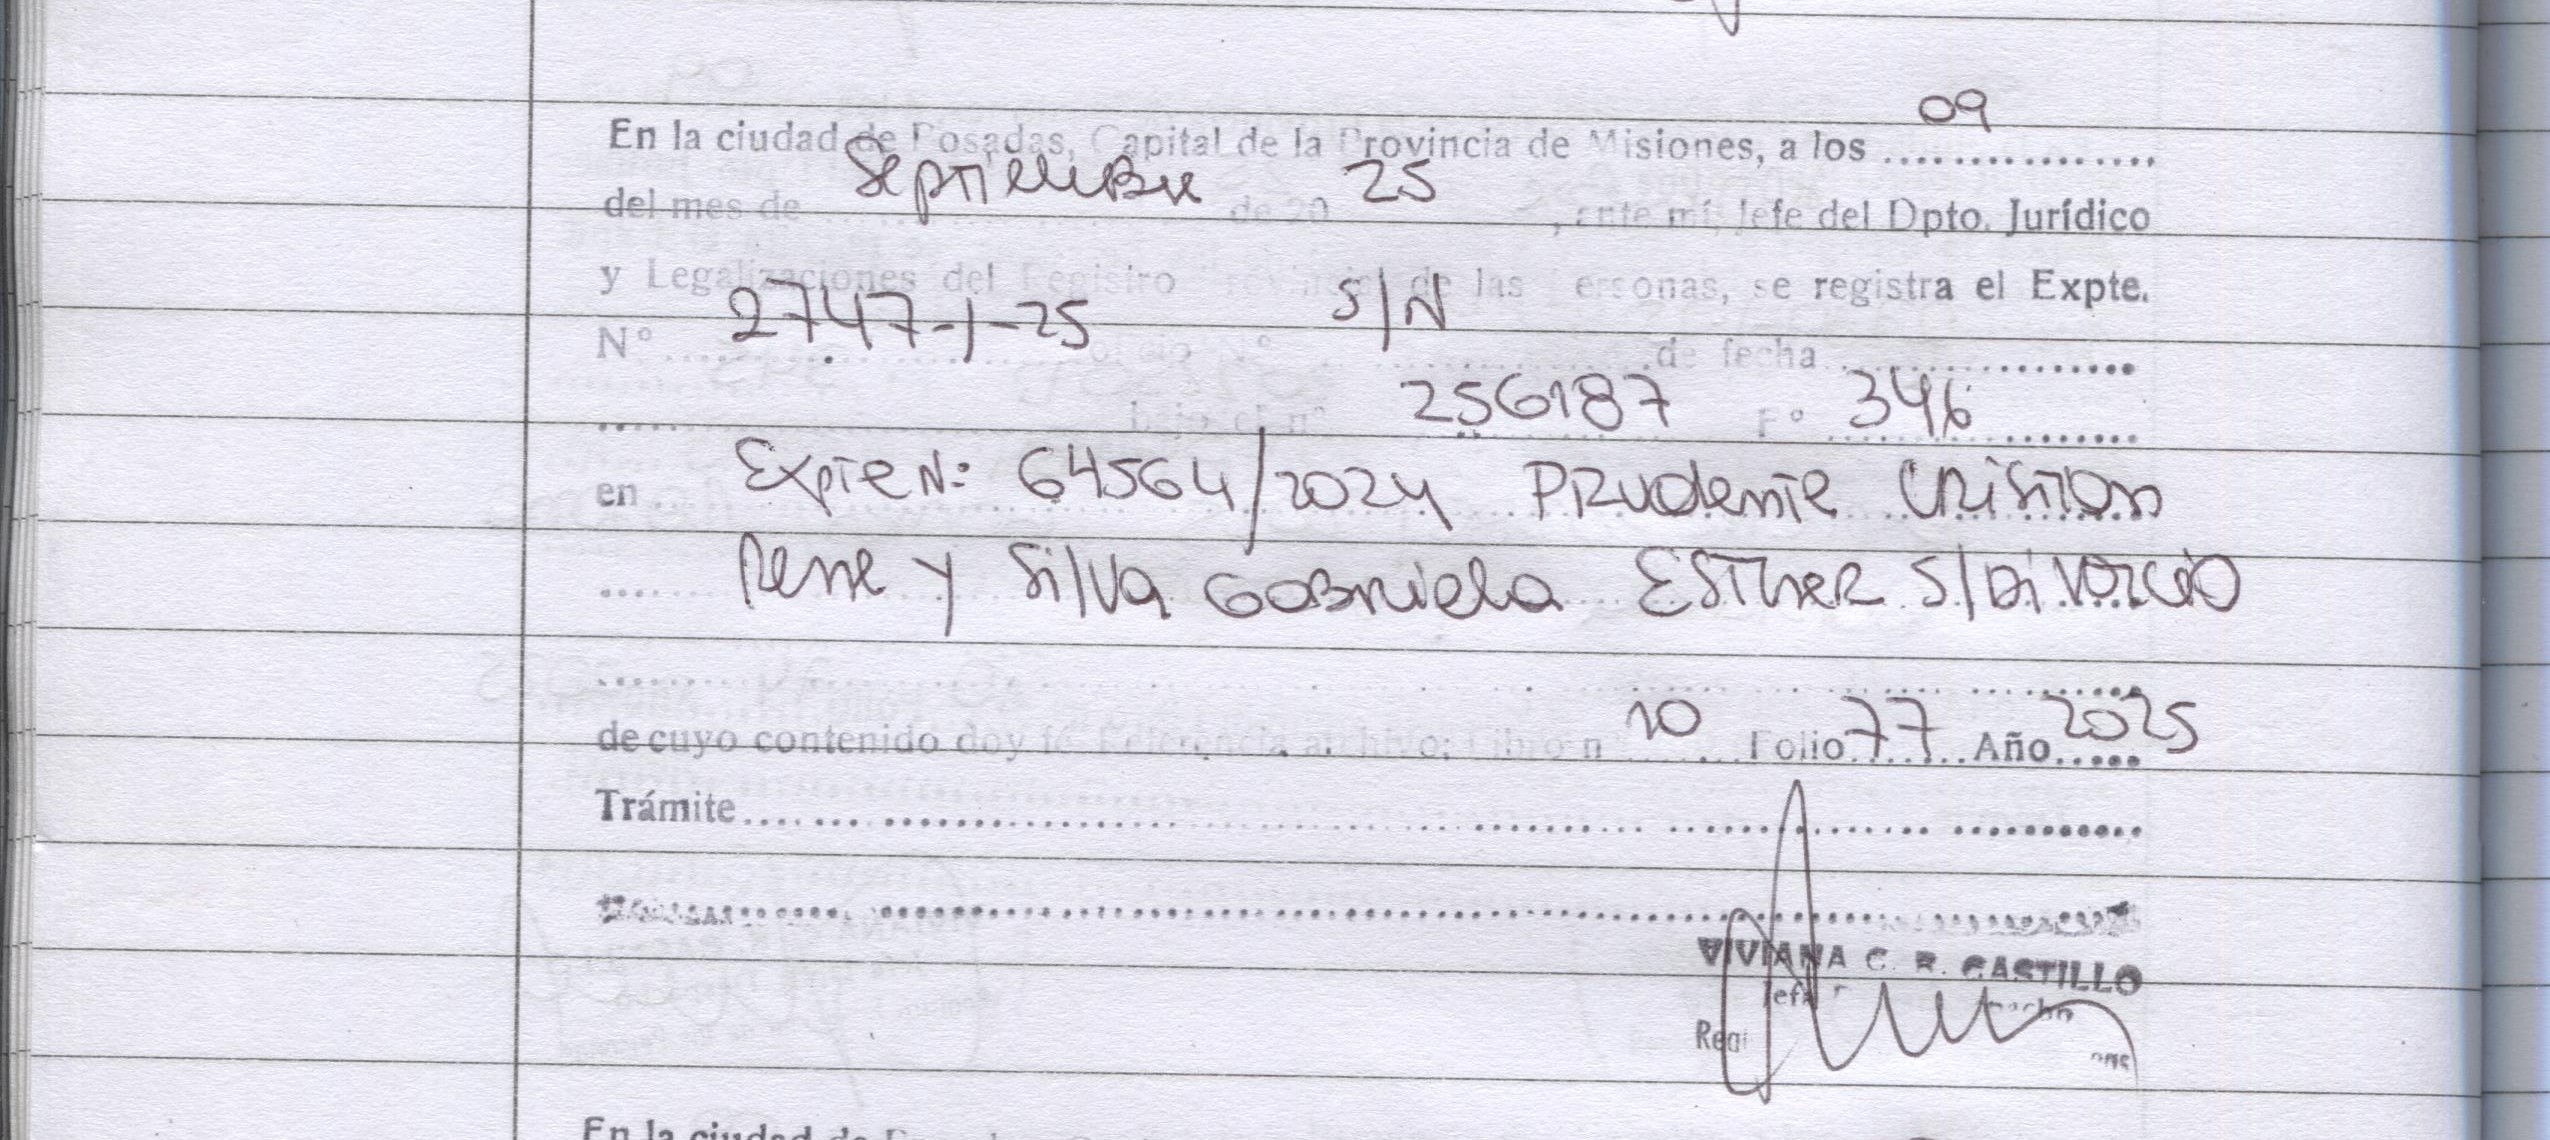 09
En la ciudad de Posadas, Capital de la Provincia de Misiones, a los ................
del mes de Septiembre de 20 25, ante mí, Jefe del Dpto. Jurídico
y Legalizaciones del Registro Provincial de las Personas, se registra el Expte.
Nº 2747-J-25 Oficio Nº S/N de fecha ................
bajo el nº 256187 Fº 346
en Expte N: 64564/2024 Prudente Cristian
Rene y Silva Gabriela Esther S/Divorcio
de cuyo contenido doy fe. Referencia archivo: Libro nº 10 Folio 77 Año 2025
Trámite................
VIVIANA C. R. CASTILLO
Jefe
Regi
En la ciudad de